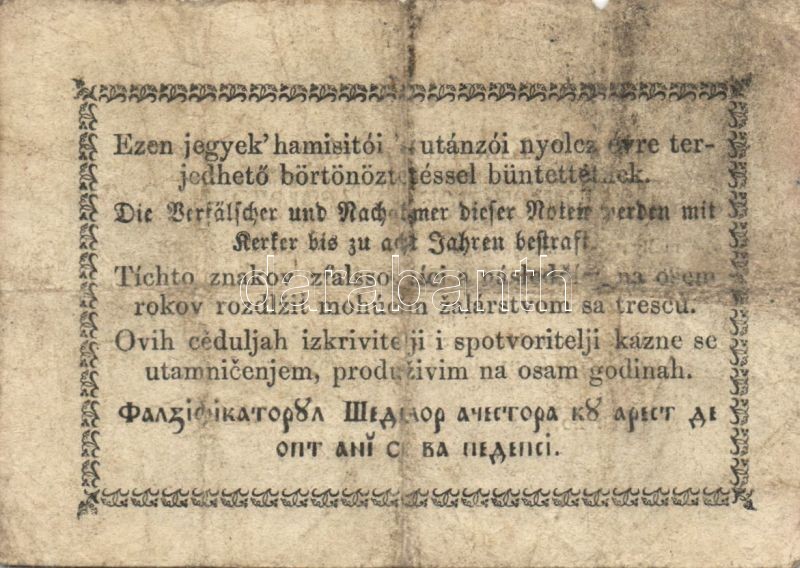 Ezen jegyek' hamisitói 's utánzói nyolcz évre ter-
jedhető börtönöztetéssel büntettetnek.
Die Verfälscher und Nachahmer dieser Noten werden mit
Kerker bis zu acht Jahren bestraft.
Tíchto znakov zfalšo na osem
rokov rozdlžit žalárstvom sa trescú.
darabanth
Ovih céduljah izkrivitelji i spotvoritelji kazne se
utamničenjem, produživim na osam godinah.
Фалзіфікаторꙋл Шедꙋлор ачестора кꙋ арест де
опт анĭ се ва педепсі.